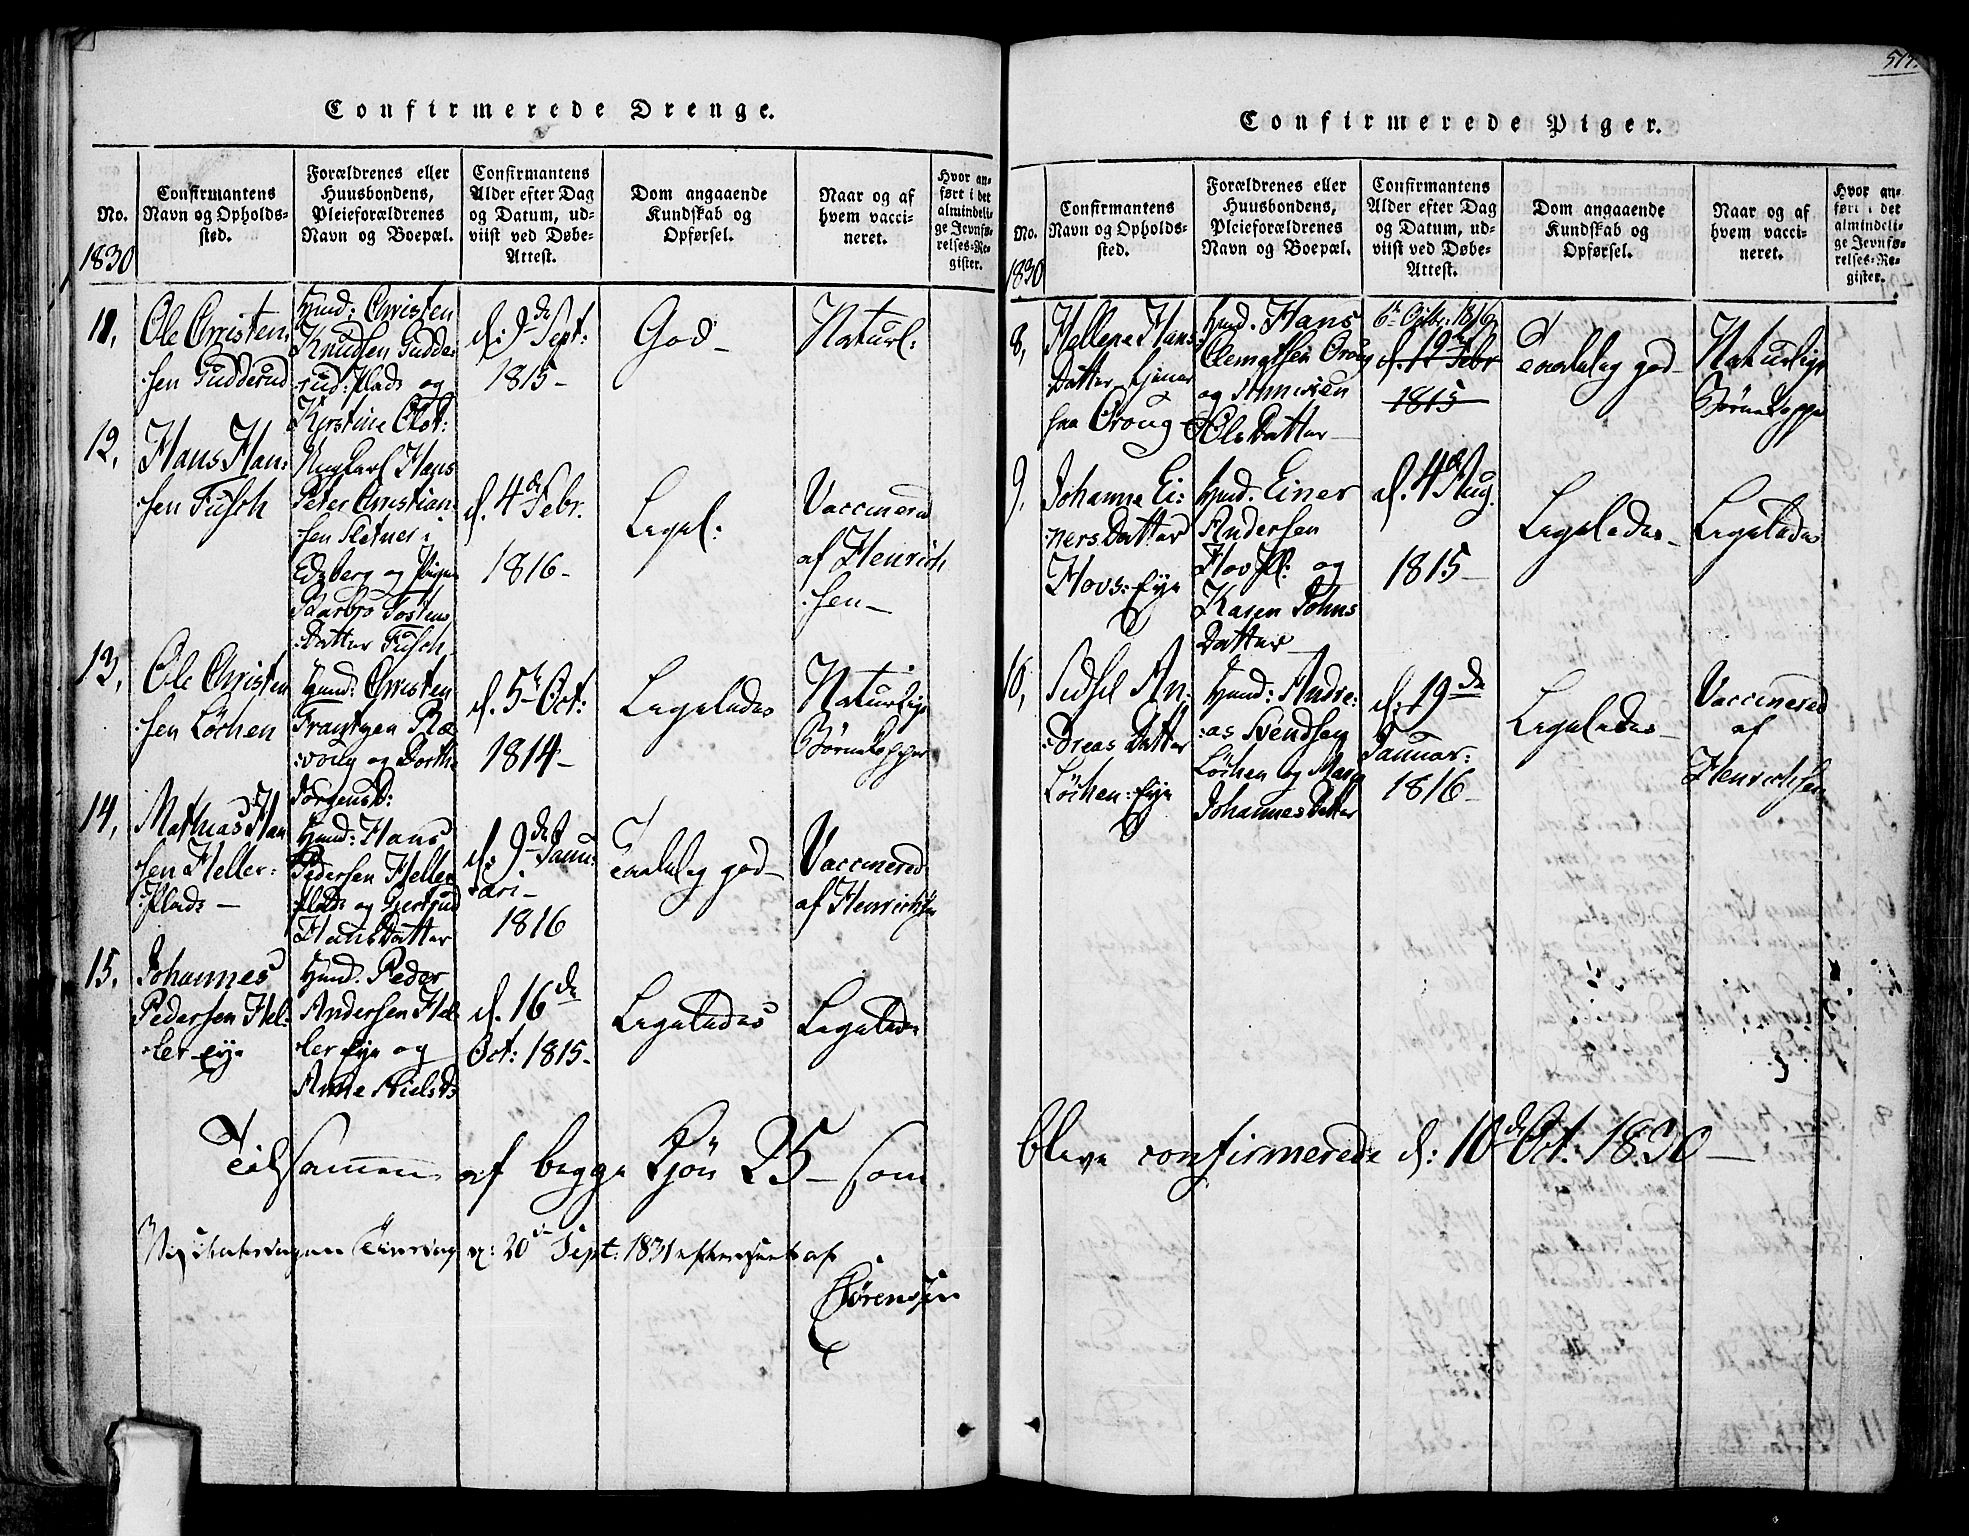 Confirmerede Drenge.
No.
1830
Confirmantens
Navn og Opholds-
sted.
Forældrenes eller
Huusbondens,
Pleieforældrenes
Navn og Boepæl.
Confirmantens
Alder efter Dag
og Datum, ud-
viist ved Døbe-
Attest.
Dom angaaende
Kundskab og
Opførsel.
Naar og af
hvem vacci-
neret.
Hvor an-
ført i det
almindeli-
ge Jevnfø-
relses-Re-
gister.
11,
Ole Christen-
sen Gudderud
Huusd: Christen
Knudsen Gudde-
rud: Plads og
Kirstine Olsd:
d: 9de Sept:
1815-
God-
Naturl:
12,
Hans Han-
sen Fusch
Ungkarl Hans
Peter Christian-
sen Sletner i
Edsberg og Pigen
Barbro Tostens
Datter Fusch
d. 4de Febr.
1816-
Ligel:
Vaccinered
af Henrich
sen-
13,
Ole Christen
sen Löchen
Huusd: Christen
Frantzen Ræ-
voug og Dorthe
Jörgensd:
d. 5te Oct:
1814-
Ligeledes
Naturlige
Börnekopper
14,
Mathias Han
sen Heller-
Plads-
Huusd: Hans
Pedersen Heller
plads og Gjertrud
HansDatter
d: 9de Janu-
ari-
1816
Temmelig god-
Vaccinered
af Henrichsen
15,
Johannes
Pedersen Hel-
ler Eje
Huusd. Peder
Andersen Hel-
ler Eje og
Anne Nielsd:
d. 16de
Oct: 1815-
Ligeledes
Ligeledes
Tilsammen af begge Kjön 25- som
Ved Visitatsen d: 20de Sept: 1831 efterseet af
Sörenssen
517.
Confirmerede Piger.
No.
1830
Confirmantens
Navn og Opholds-
sted.
Forældrenes eller
Huusbondens,
Pleieforældrenes
Navn og Boepæl.
Confirmantens
Alder efter Dag
og Datum, ud-
viist ved Døbe-
Attest.
Dom angaaende
Kundskab og
Opførsel.
Naar og af
hvem vacci-
neret.
Hvor an-
ført i det
almindeli-
ge Jevnfø-
relses-Re-
gister.
8,
Hellene Hans
Datter tjener
paa Oroug
Huusd. Hans
Clemetsen Oroug
og
OlsDatter-
6te Octbr: 1816
d. 12te Febr
1815
Temmelig god-
Naturlige
Börnekopper
9,
Johanne Ei-
nersDatter
Hovs: Eje
Huusd. Einer
Andersen
Hov Pl: og
Karen Johns
Datter
d. 4de Aug.
1815-
Ligeledes-
Ligeledes
10,
Sidsel An-
dreas Datter
Löchen: Eje
Huusd: Andre-
as Svendsen
Löchen og Mari
JohannesDatter
d: 19de
Januar:
1816-
Ligeledes-
Vaccinered
af
Henrichsen
bleve confirmerede d: 10de Oct. 1830-